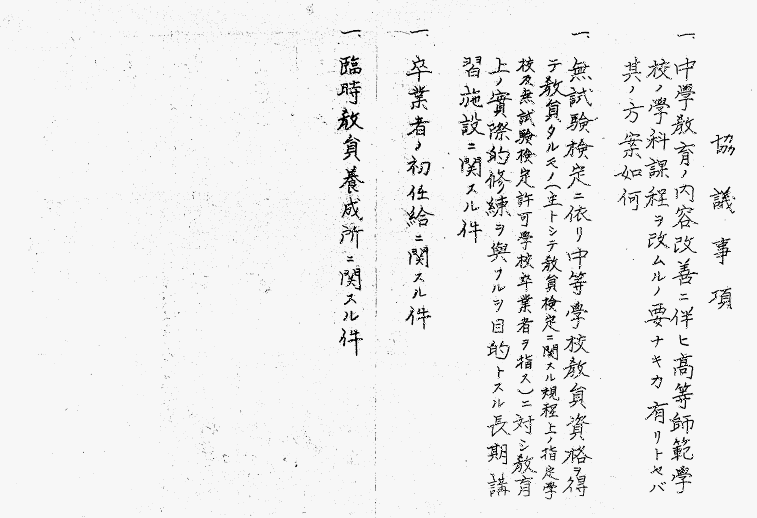 協議事項
一、中學教育ノ内容改善ニ伴ヒ高等師範學
校ノ學科課程ヲ改ムルノ要ナキカ有リトセバ
其ノ方案如何
一、無試驗檢定ニ依リ中等學校教員資格ヲ得
テ教員タルモノ(主トシテ教員檢定ニ関スル規程上ノ指定學
校及無試驗檢定許可學校卒業者ヲ指ス)ニ対シ教育
上ノ實際的修練ヲ與フルヲ目的トスル長期講
習施設ニ関スル件
一、卒業者ノ初任給ニ関スル件
一、臨時教員養成所ニ関スル件